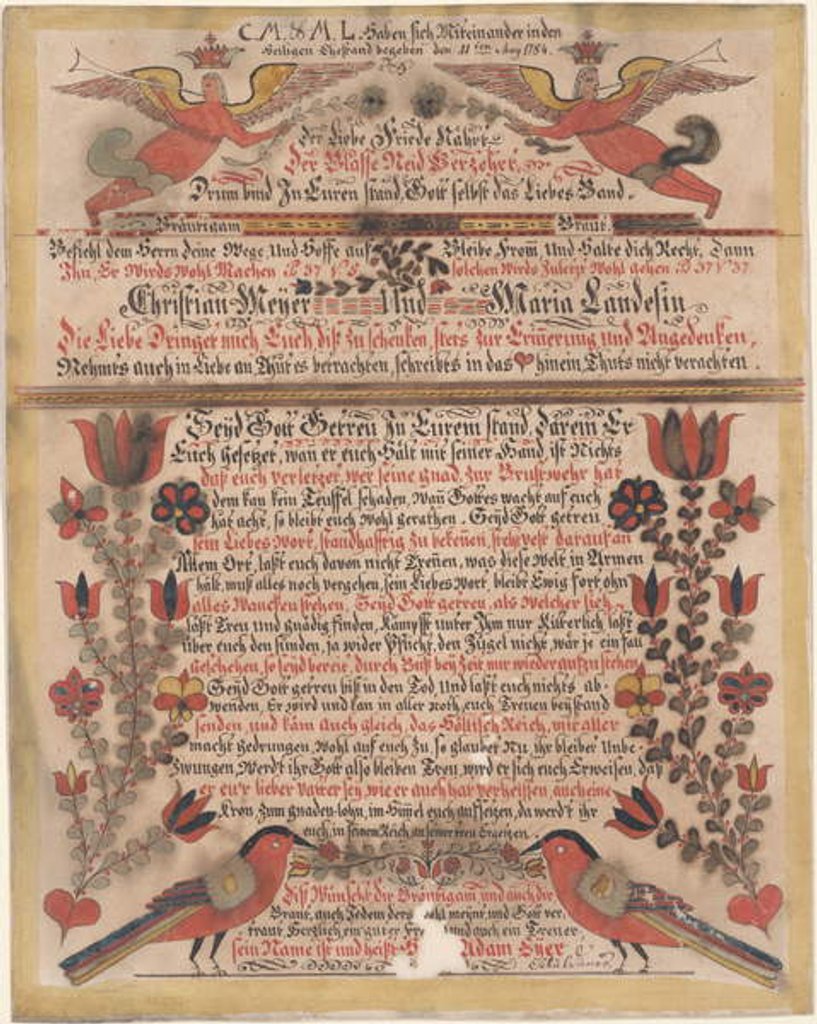 C. M. & M. L. Haben sich Miteinander in den
Heiligen Ehestand begeben den 11ten May 1784.
Der Liebe Friede Nährt
Der Blasse Neid Verzehrt
Drum bind In Euren stand, Gott selbst das Liebes Band.
Bräutigam Braut.
Befiehl dem Herrn Deine Wege, Und Hoffe auf
Ihn, Er Wirds Wohl Machen Ps 37 V 5
Bleibe From, Und Halte dich Recht, Dann
solchen Wirds Zuletzt Wohl gehen Ps 37 V 37
Christian Meyer Und Maria Landesin
Die Liebe Dringet mich Euch diß Zu schencken, stets Zur Erinerung und Angedencken,
Nehmts auch in Liebe an, Thut es betrachten, schreibts in das hinein, Thuts nicht verachten.
Seyd Gott Getreu In Eurem stand, Darein Er
Euch Gesetzet, wan er euch Hält mit seiner Hand, ist Nichts
das euch verletzet, wer seine gnad, zur Brustwehr hat
dem kan kein Teuffel schaden, Wañ Gottes wacht auf euch
hat acht, so bleibt euch Wohl gerathen. Seyd Gott getreu
sein Liebes Wort, standhafftig Zu bekeñen, steht vest darauf an
Allem Ort, laßt euch davon nicht Treñen, was diese Welt in Armen
hält, muß alles noch vergehen, sein Liebes Wort, bleibt Ewig fort ohn
alles Wancken stehen. Seyd Gott getreu, als Welcher sich
läßt Treu Und gnädig finden, Kämpfft Unter Ihm nur Ritterlich laßt
über euch den sünden, ja wider Pflicht, den Zügel nicht, wär je ein fall
Geschehen, so seyd bereit, durch Buß bey Zeit nur wieder aufzu stehen
Seyd Gott getreu biß in den Tod Und laßt euch nichts ab-
wenden, Er wird und kan in aller Noth, euch Treuen beystand
senden, und käm Auch gleich, das Höllisch Reich, mit aller
macht gedrungen, Wohl auf euch Zu, so glaubt Nu, ihr bleibet Unbe-
Zwungen, Werdt ihr Gott also bleiben Treu, wird er sich euch Erweisen, daß
er eu'r lieber Vatter sey, wie er auch hat verheissen, auch eine
Kron, zum gnaden-lohn, im Himel euch aufsetzen, da werd't ihr
euch, in seinem Reich Ergetzen.
Diß Wünscht dir Bräutigam, und auch die
Braut, auch Jedem ders wohl meynt, und Gott ver-
traut, Hertzlich ein guter und auch ein Treuer
sein Name ist und heißt Adam Eyer